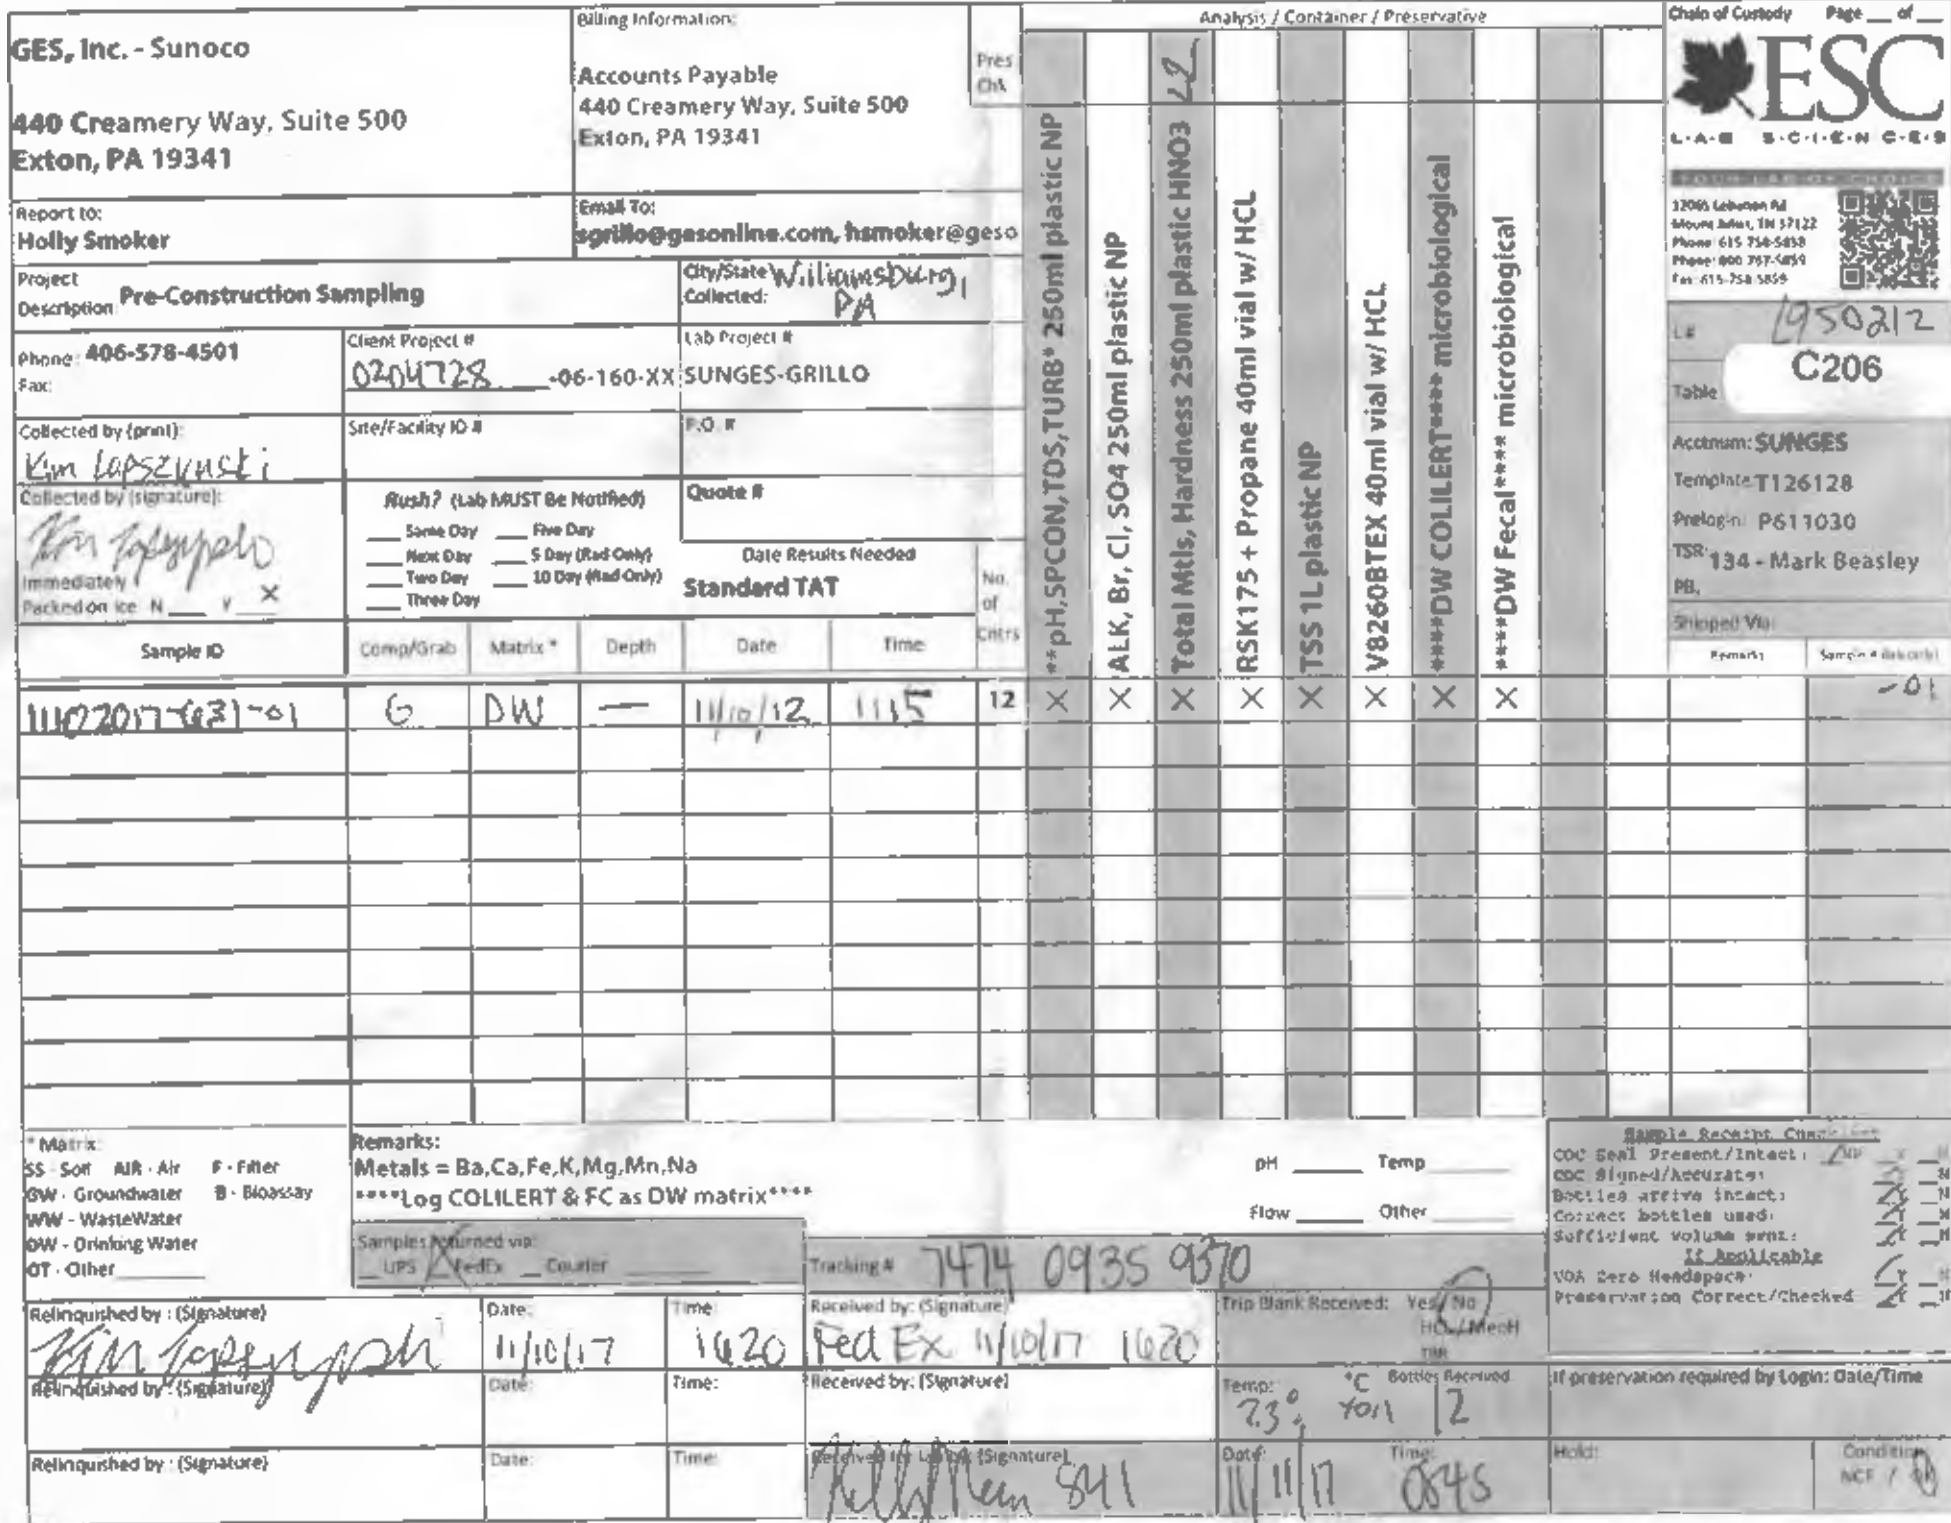 GES, Inc. - Sunoco
440 Creamery Way, Suite 500
Exton, PA 19341
Billing Information:
Accounts Payable
440 Creamery Way, Suite 500
Exton, PA 19341
Pres
Chk
Analysis / Container / Preservative
Chain of Custody Page __ of __
ESC
L·A·B S·C·I·E·N·C·E·S
12065 Lebanon Rd
Mount Juliet, TN 37122
Phone: 615-758-5858
Phone: 800-767-5859
Fax: 615-758-5859
Report to:
Holly Smoker
Email To:
sgrillo@gesonline.com, hsmoker@geso
Project
Description: Pre-Construction Sampling
City/State
Collected: Williamsburg, PA
Phone: 406-578-4501
Fax:
Client Project #
0204728 -06-160-XX
Lab Project #
SUNGES-GRILLO
Collected by (print):
Kim Lapszynski
Site/Facility ID #
P.O. #
Collected by (signature):
Immediately
Packed on Ice N ___ Y ___ X
Rush? (Lab MUST Be Notified)
___ Same Day ___ Five Day
___ Next Day ___ 5 Day (Rad Only)
___ Two Day ___ 10 Day (Rad Only)
___ Three Day
Quote #
Date Results Needed
Standard TAT
No.
of
Cntrs
**pH,SPCON,TDS,TURB* 250ml plastic NP
ALK, Br, Cl, SO4 250ml plastic NP
Total Mtls, Hardness 250ml plastic HNO3
RSK175 + Propane 40ml vial w/ HCL
TSS 1L plastic NP
V8260BTEX 40ml vial w/ HCL
****DW COLILERT**** microbiological
****DW Fecal**** microbiological
L# L950212
Table C206
Acctnum: SUNGES
Template: T126128
Prelogin: P611030
TSR: 134 - Mark Beasley
PB:
Shipped Via:
Remarks Sample # (lab only)
Sample ID Comp/Grab Matrix * Depth Date Time
G DW — 1115 12 X X X X X X X X -01
* Matrix:
SS - Soil AIR - Air F - Filter
GW - Groundwater B - Bioassay
WW - WasteWater
DW - Drinking Water
OT - Other
Remarks:
Metals = Ba,Ca,Fe,K,Mg,Mn,Na
****Log COLILERT & FC as DW matrix****
pH ______ Temp ______
Flow ______ Other ______
Samples returned via:
__ UPS X FedEx __ Courier ______
Tracking # 7474 0935 9370
Sample Receipt Checklist
COC Seal Present/Intact:
COC Signed/Accurate:
Bottles arrive intact:
Correct bottles used:
Sufficient volume sent:
If Applicable
VOA Zero Headspace:
Preservation Correct/Checked
Relinquished by : (Signature)
Date: 11/10/17
Time: 1620
Received by: (Signature)
Fed Ex 11/10/17 1620
Trip Blank Received: Yes / No
HCL / MeoH
TBR
Relinquished by : (Signature)
Date:
Time:
Received by: (Signature)
Temp: °C Bottles Received:
12
If preservation required by Login: Date/Time
Relinquished by : (Signature)
Date:
Time:
Received for lab by: (Signature)
841
Date: 11/11/17
Time: 0845
Hold:
Condition:
NCF / OK